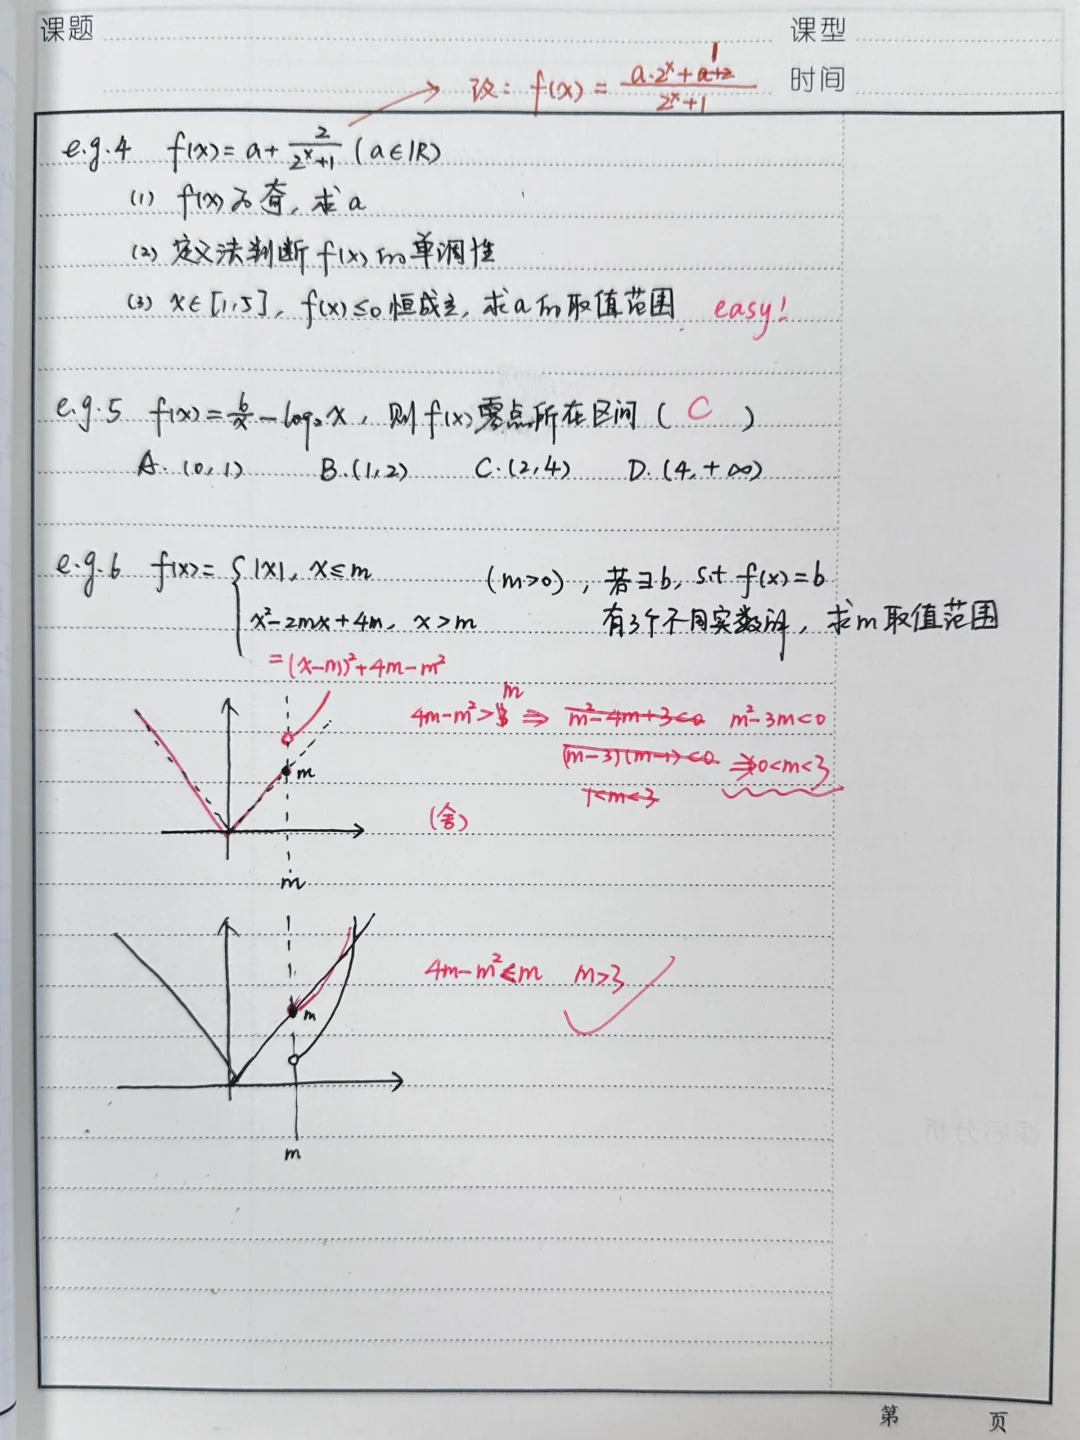 课题
课型
时间
改: f(x) = (a·2^x + 1)/(2^x+1)
e.g.4 f(x) = a + 2/(2^x+1) (a∈R)
(1) f(x)为奇, 求a
(2) 定义法判断 f(x)的单调性
(3) x∈[1,5], f(x)≤0恒成立, 求a的取值范围 easy!
e.g.5 f(x)=6/x - log₂x, 则f(x)零点所在区间( C )
A. (0,1) B.(1,2) C.(2,4) D.(4,+∞)
e.g.6 f(x)= { |x|, x≤m (m>0), 若∃b, s.t f(x)=b
x²-2mx+4m, x>m 有3个不同实数解, 求m取值范围
=(x-m)²+4m-m²
4m-m²>m ⇒ m²-4m+3<0 m²-3m<0
(m-3)(m-1)<0 ⇒0<m<3
1<m<3
m
(舍)
m
4m-m²<m m>3
m
m
第 页